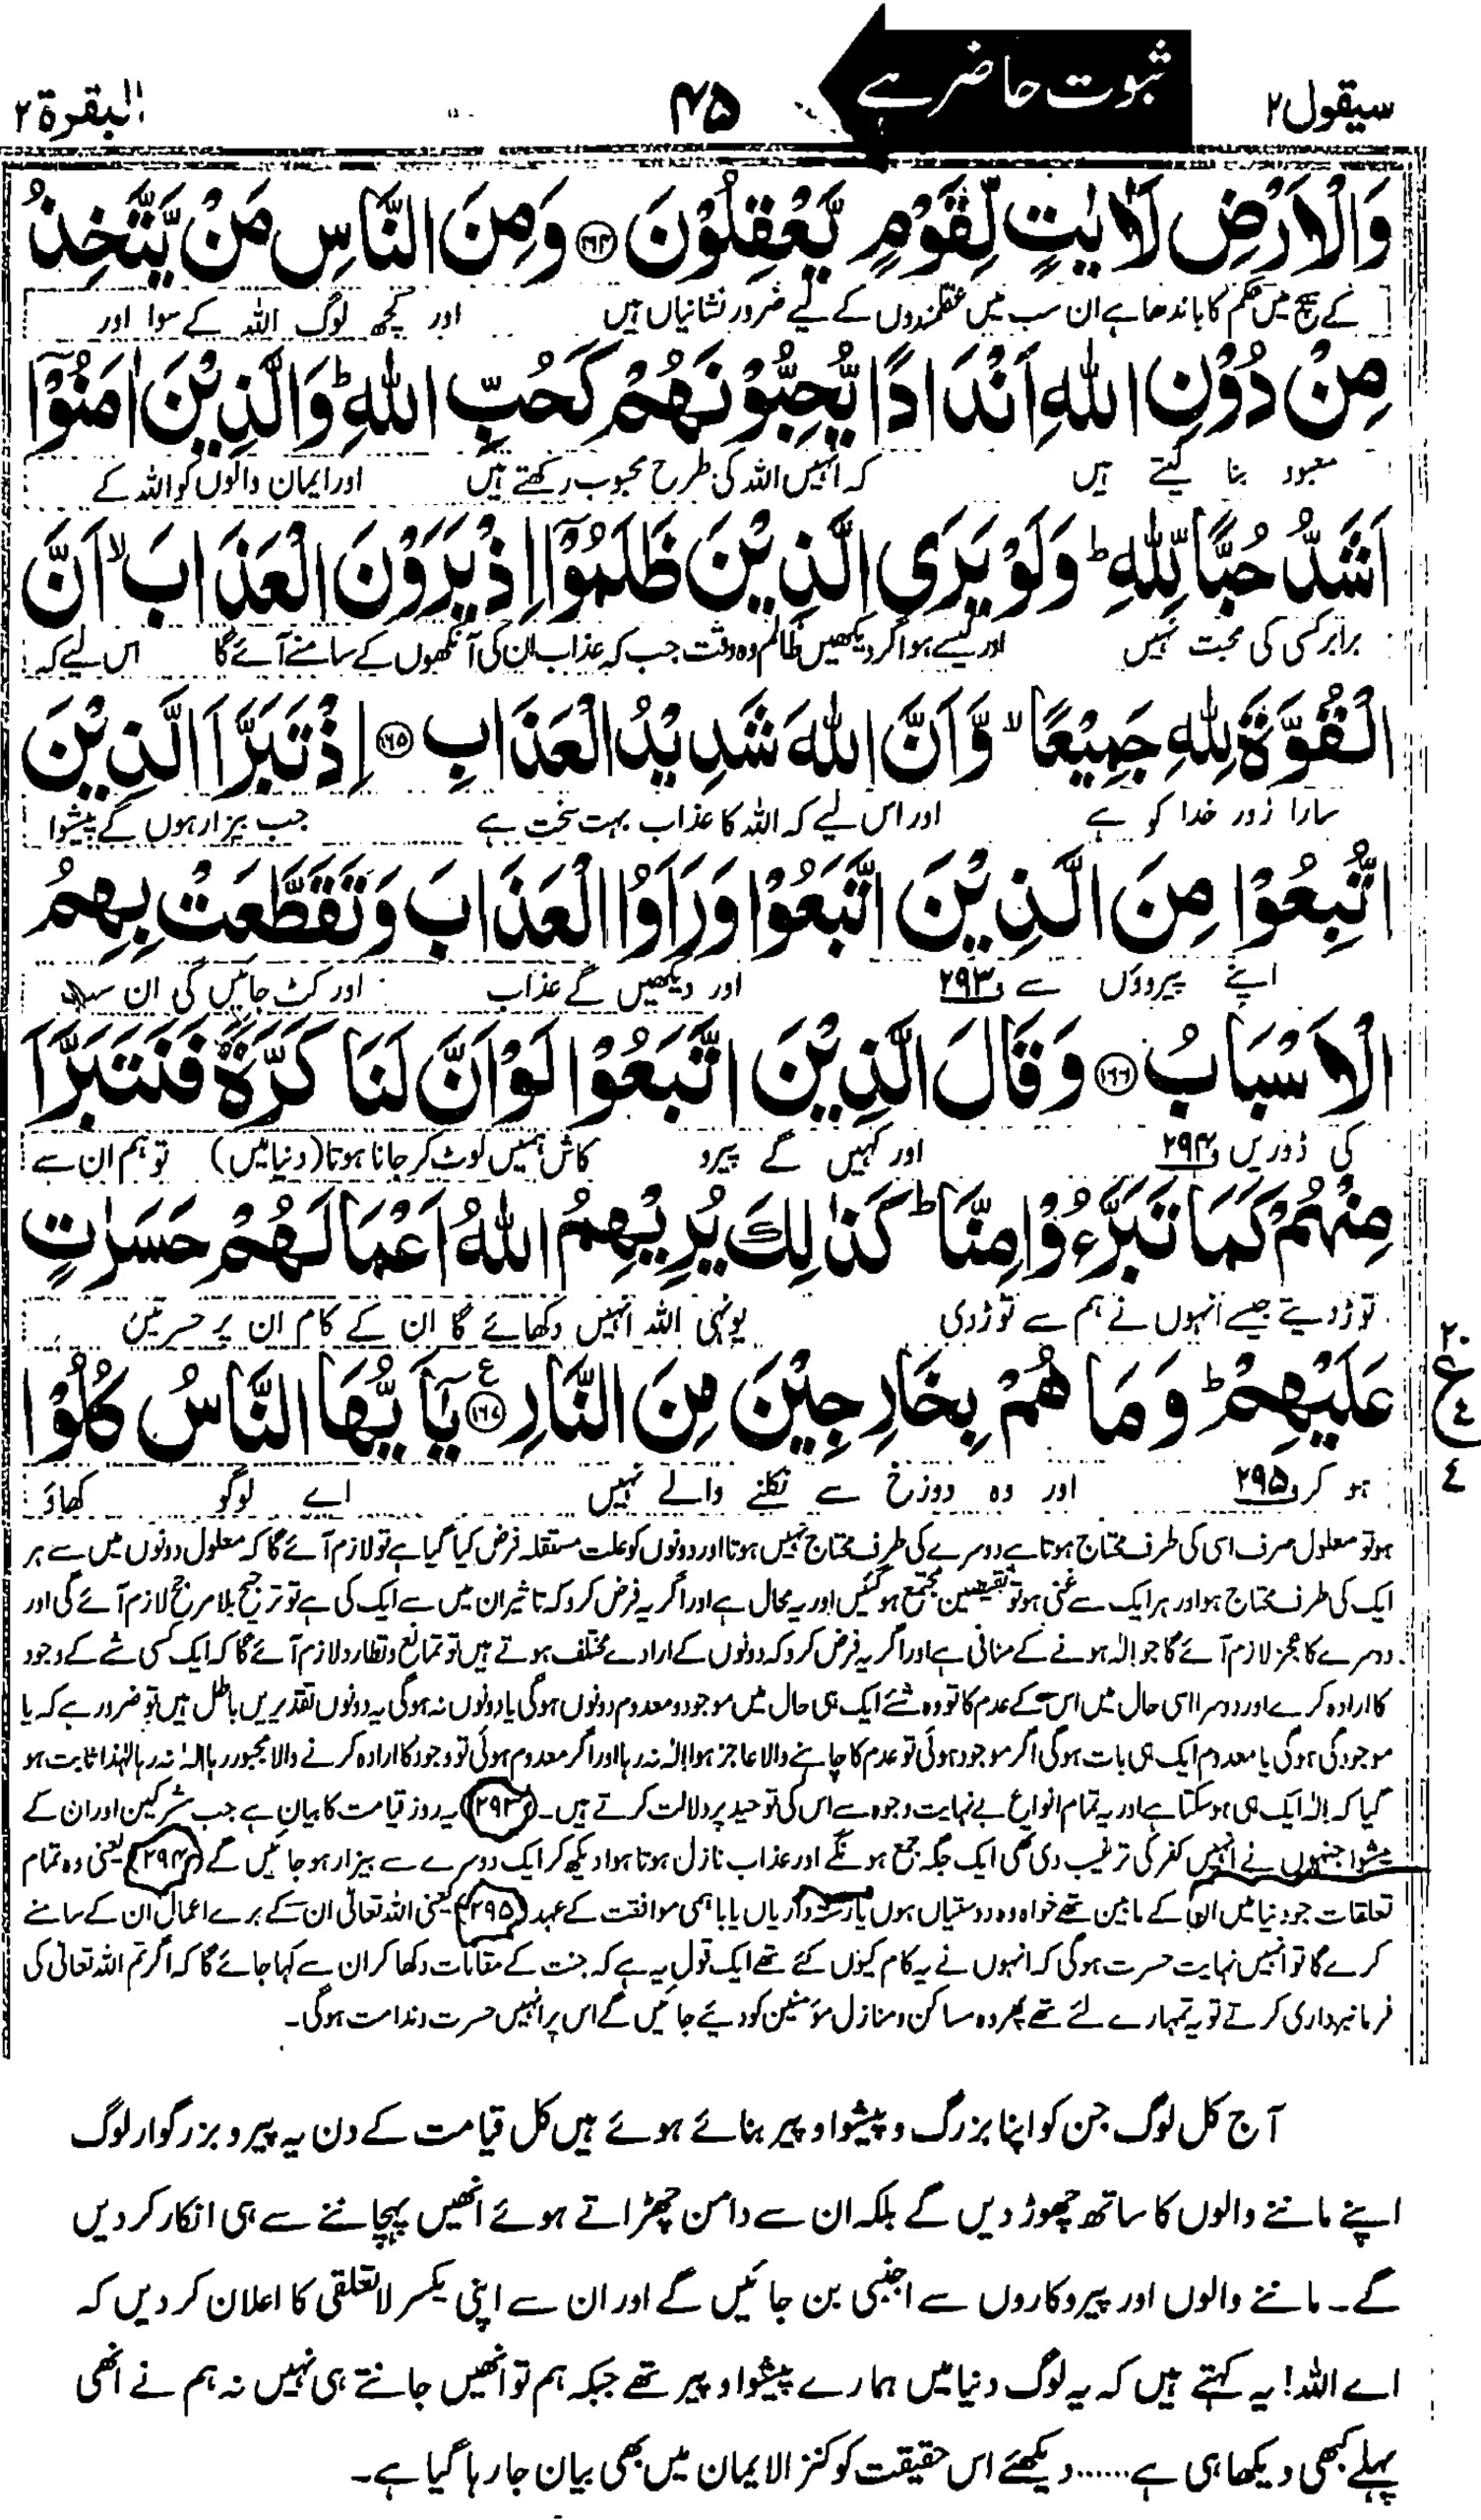 سیقول۲
ثبوت حاضر ہے
۴۵
البقرۃ۲
وَالْاَرْضِ لَاٰیٰتٍ لِّقَوْمٍ یَّعْقِلُوْنَ ۱۶۴ وَمِنَ النَّاسِ مَنْ یَّتَّخِذُ
کے بیچ میں حکم کا باندھا ہے ان سب میں عقلمندوں کے لیے ضرور نشانیاں ہیں اور کچھ لوگ اللہ کے سوا اور
مِنْ دُوْنِ اللّٰهِ اَنْدَادًا یُّحِبُّوْنَهُمْ كَحُبِّ اللّٰهِ ؕ وَالَّذِیْنَ اٰمَنُوْۤا
معبود بنا لیتے ہیں کہ انہیں اللہ کی طرح محبوب رکھتے ہیں اور ایمان والوں کو اللہ کے
اَشَدُّ حُبًّا لِّلّٰهِ ؕ وَلَوْ یَرَی الَّذِیْنَ ظَلَمُوْۤا اِذْ یَرَوْنَ الْعَذَابَ ۙ اَنَّ
برابر کسی کی محبت نہیں اور کیسے ہو اگر دیکھیں ظالم وہ وقت جب کہ عذاب ان کی آنکھوں کے سامنے آئے گا اس لیے کہ
الْقُوَّةَ لِلّٰهِ جَمِیْعًا ۙ وَّاَنَّ اللّٰهَ شَدِیْدُ الْعَذَابِ ۱۶۵ اِذْ تَبَرَّاَ الَّذِیْنَ
سارا زور خدا کو ہے اور اس لیے کہ اللہ کا عذاب بہت سخت ہے جب بیزار ہوں گے پیشوا
اتُّبِعُوْا مِنَ الَّذِیْنَ اتَّبَعُوْا وَرَاَوُا الْعَذَابَ وَتَقَطَّعَتْ بِهِمُ
اپنے پیرووں سے و۲۹۳ اور دیکھیں گے عذاب اور کٹ جائیں گی ان سب
الْاَسْبَابُ ۱۶۶ وَقَالَ الَّذِیْنَ اتَّبَعُوْا لَوْ اَنَّ لَنَا كَرَّةً فَنَتَبَرَّاَ
کی ڈوریں و۲۹۴ اور کہیں گے پیرو کاش ہمیں لوٹ کر جانا ہوتا (دنیا میں) تو ہم ان سے
مِنْهُمْ كَمَا تَبَرَّءُوْا مِنَّا ؕ كَذٰلِكَ یُرِیْهِمُ اللّٰهُ اَعْمَالَهُمْ حَسَرٰتٍ
توڑ دیتے جیسے انہوں نے ہم سے توڑ دی یونہی اللہ انہیں دکھائے گا ان کے کام ان پر حسرتیں
عَلَیْهِمْ ؕ وَمَا هُمْ بِخَارِجِیْنَ مِنَ النَّارِ ۱۶۷ ع یٰۤاَیُّهَا النَّاسُ كُلُوْا
۲۰
ع
٤
٤
ہو کر و۲۹۵ اور وہ دوزخ سے نکلنے والے نہیں اے لوگو کھاؤ
ہو تو معلول صرف اسی کی طرف محتاج ہوتا ہے دوسرے کی طرف محتاج نہیں ہوتا اور دونوں کو علت مستقلہ فرض کیا گیا ہے تو لازم آئے گا کہ معلول دونوں میں سے ہر
ایک کی طرف محتاج ہو اور ہر ایک سے غنی ہو تو نقیضین مجتمع ہو گئیں اور یہ محال ہے اور اگر یہ فرض کرو کہ تاثیر ان میں سے ایک کی ہے تو ترجیح بلا مرجح لازم آئے گی اور
دوسرے کا عجز لازم آئے گا جو الٰہ ہونے کے منافی ہے اور اگر یہ فرض کرو کہ دونوں کے ارادے مختلف ہوتے ہیں تو تمانع و تطارد لازم آئے گا کہ ایک کسی شے کے وجود
کا ارادہ کرے اور دوسرا اسی حال میں اس کے عدم کا تو وہ شئے ایک ہی حال میں موجود و معدوم دونوں ہوگی یا دونوں نہ ہوگی یہ دونوں تقدیریں باطل ہیں تو ضرور ہے کہ یا
موجود گی ہوگی یا معدوم ایک ہی بات ہوگی اگر موجود ہوئی تو عدم کا چاہنے والا عاجز ہوا الٰہ نہ رہا اور اگر معدوم ہوئی تو وجود کا ارادہ کرنے والا مجبور رہا الٰہ نہ رہا لہٰذا ثابت ہو
گیا کہ الٰہ ایک ہی ہو سکتا ہے اور یہ تمام انواع بے نہایت وجوہ سے اس کی توحید پر دلالت کرتے ہیں۔ (۲۹۳) یہ روز قیامت کا بیان ہے جب مشرکین اور ان کے
پیشوا جنہوں نے انہیں کفر کی ترغیب دی تھی ایک جگہ جمع ہونگے اور عذاب نازل ہوتا ہوا دیکھ کر ایک دوسرے سے بیزار ہو جائیں گے (۲۹۴) یعنی وہ تمام
تعلقات جو دنیا میں ان کے مابین تھے خواہ وہ دوستیاں ہوں یا رشتہ داریاں یا باہمی موافقت کے عہد (۲۹۵) یعنی اللہ تعالیٰ ان کے برے اعمال ان کے سامنے
کرے گا تو انہیں نہایت حسرت ہوگی کہ انہوں نے یہ کام کیوں کئے تھے ایک قول یہ ہے کہ جنت کے مقامات دکھا کر ان سے کہا جائے گا کہ اگر تم اللہ تعالیٰ کی
فرمانبرداری کرتے تو یہ تمہارے لئے تھے پھر وہ مساکن و منازل مؤمنین کو دیئے جائیں گے اس پر انہیں حسرت و ندامت ہوگی۔
آج کل لوگ جن کو اپنا بزرگ و پیشوا و پیر بنائے ہوئے ہیں کل قیامت کے دن یہ پیر و بزرگوار لوگ
اپنے ماننے والوں کا ساتھ چھوڑ دیں گے بلکہ ان سے دامن چھڑاتے ہوئے انھیں پہچاننے سے ہی انکار کر دیں
گے۔ ماننے والوں اور پیروکاروں سے اجنبی بن جائیں گے اور ان سے اپنی یکسر لاتعلقی کا اعلان کر دیں کہ
اے اللہ! یہ کہتے ہیں کہ یہ لوگ دنیا میں ہمارے پیشوا و پیر تھے جبکہ ہم تو انھیں جانتے ہی نہیں نہ ہم نے انھی
پہلے کبھی دیکھا ہی ہے......دیکھئے اس حقیقت کو کنز الایمان میں بھی بیان جا رہا گیا ہے۔